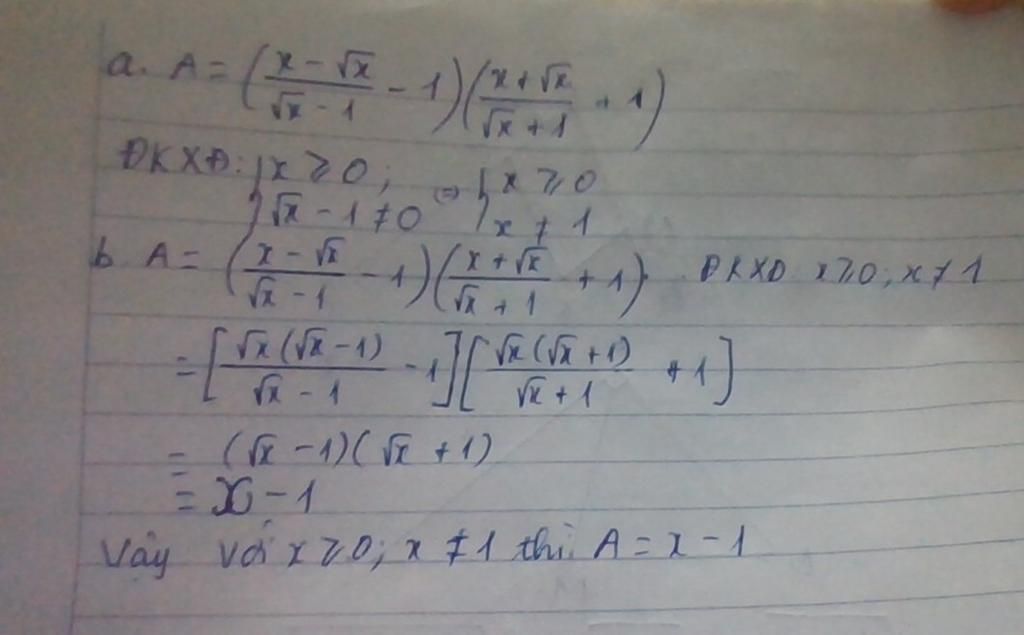 a. A = ((x - √x)/(√x - 1) - 1)((x + √x)/(√x + 1) + 1)
ĐKXĐ: { x ≥ 0; √x - 1 ≠ 0 ⇔ { x ≥ 0 x ≠ 1
b A = ((x - √x)/(√x - 1) - 1)((x + √x)/(√x + 1) + 1). ĐKXĐ x ≥ 0; x ≠ 1
= [(√x(√x - 1))/(√x - 1) - 1][(√x(√x + 1))/(√x + 1) + 1]
= (√x - 1)(√x + 1)
= x - 1
Vậy với x ≥ 0; x ≠ 1 thì A = x - 1